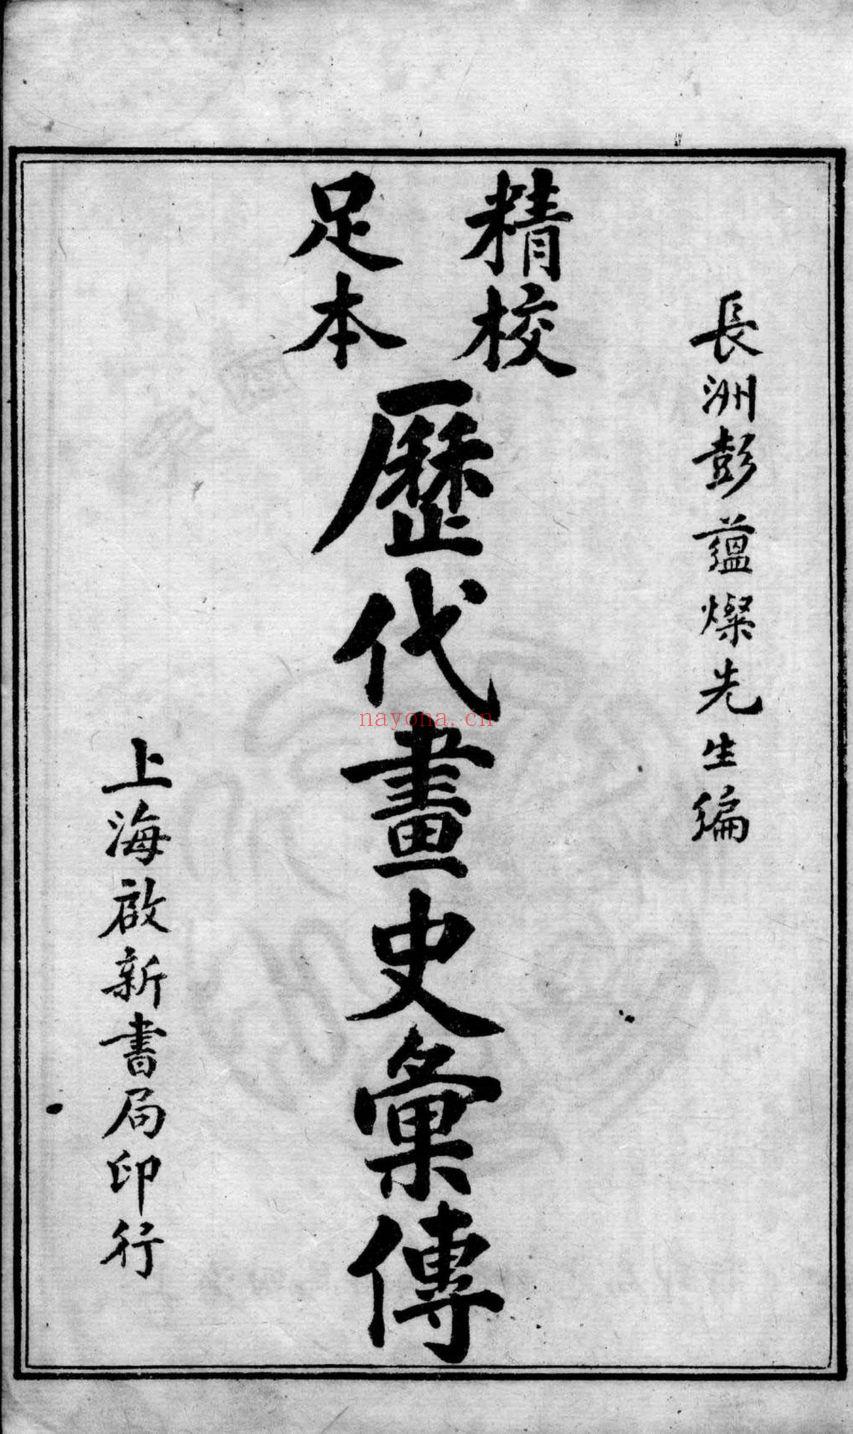 長洲彭蘊燦先生編
精校
足本
歷代畫史彙傳
上海啟新書局印行
nayona.cn